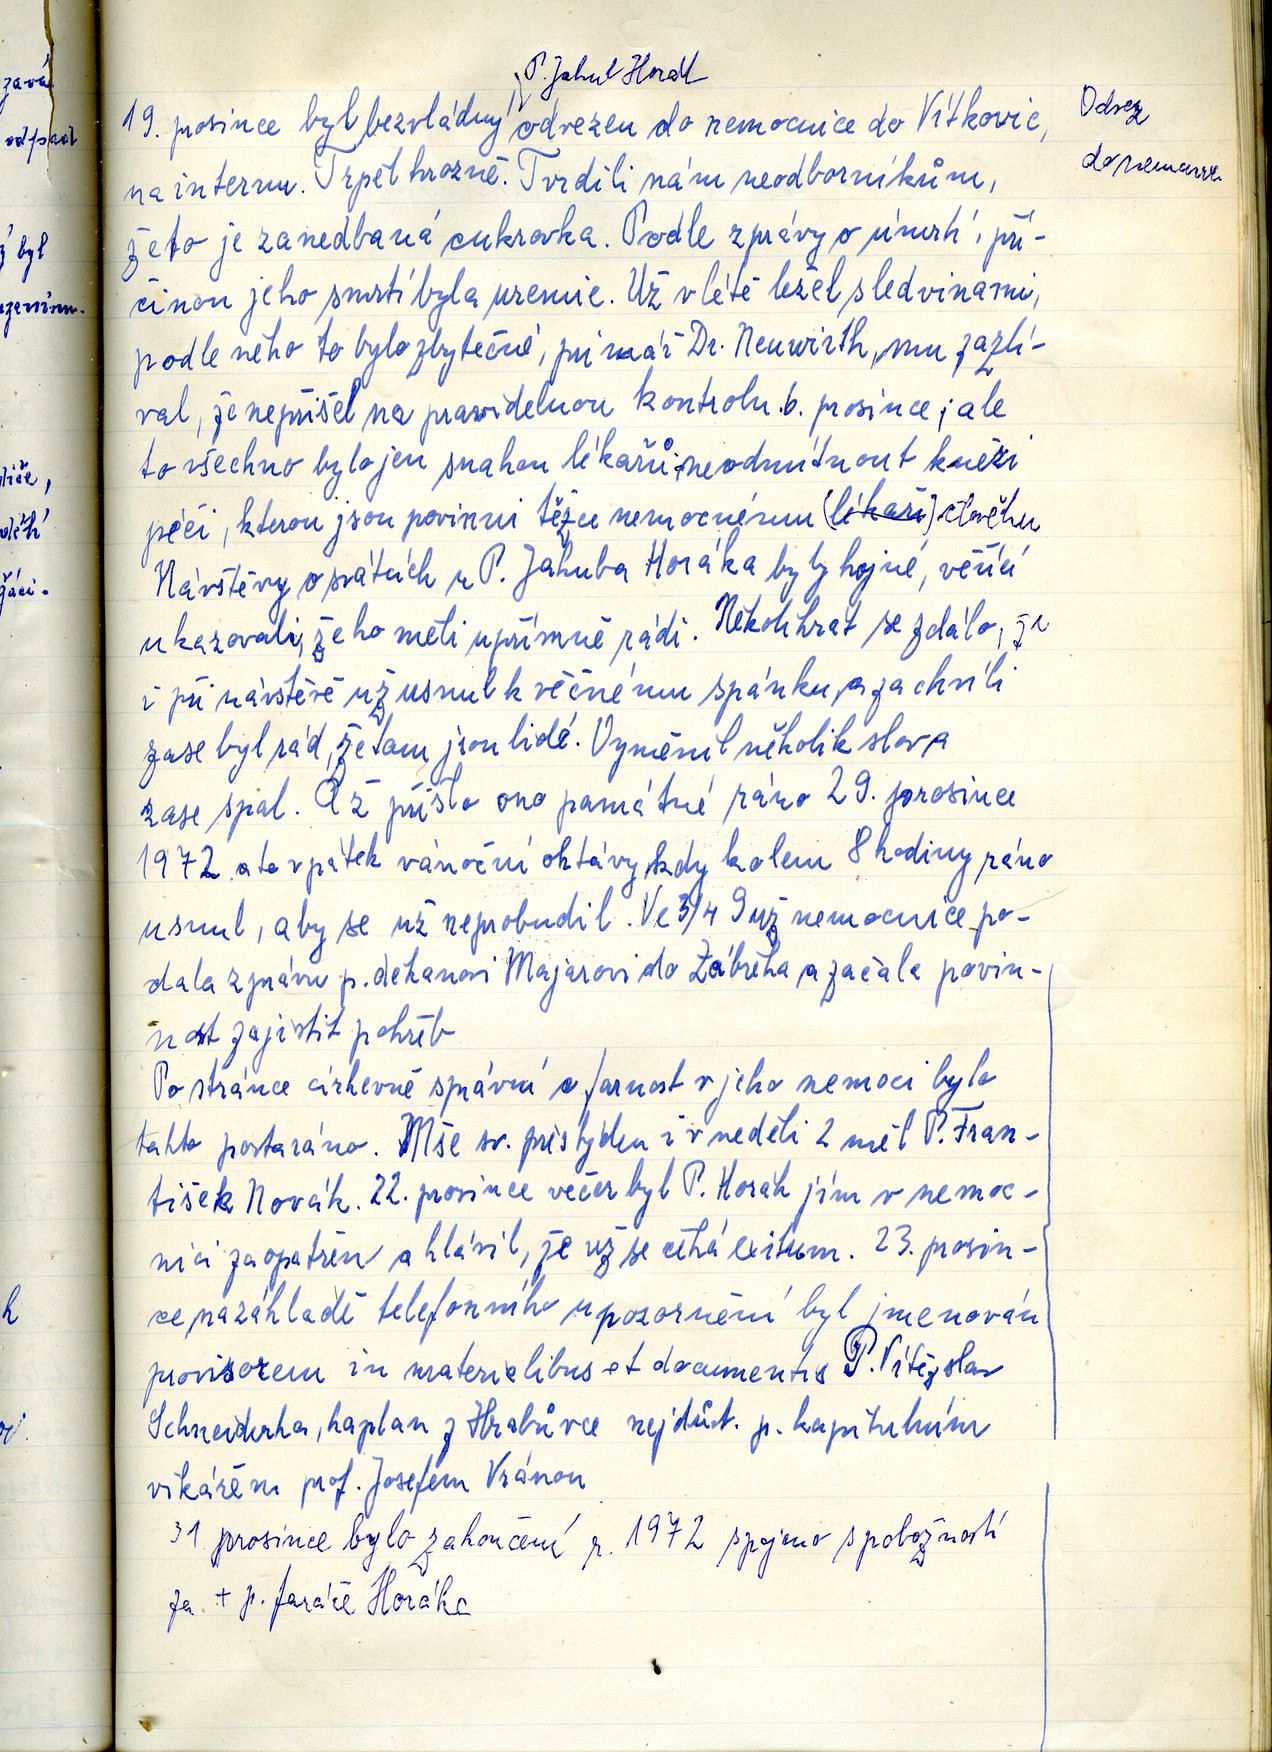 P. Jakub Horák
19. prosince byl bezvládný odvezen do nemocnice do Vítkovic,
Odvoz
do nemocnice
na internu. Trpěl hrozně. Tvrdili nám neodborníkům,
že to je zanedbaná cukrovka. Podle zprávy o úmrtí, pří-
činou jeho smrti byla uremie. Už v létě ležel s ledvinami,
podle něho to bylo zbytečné, primář Dr. Neuwirth, mu zazlí-
val, že nepřišel na pravidelnou kontrolu 6. prosince, ale
to všechno bylo jen snahou lékařů neodmítnout knězi
péči, kterou jsou povinni těžce nemocnému (lékaři) člověku
Návštěvy o svátcích u P. Jakuba Horáka byly hojné, věřící
ukazovali, že ho měli upřímně rádi. Několikrát se zdálo, že
i při návštěvě už usnul k věčnému spánku, a za chvíli
zase byl rád, že tam jsou lidé. Vyměnil několik slov a
zase spal. Až přišlo ono památné ráno 29. prosince
1972 a to v pátek vánoční oktávy, kdy kolem 8 hodiny ráno
usnul, aby se už neprobudil. Ve 3/4 9 už nemocnice po-
dala zprávu p. děkanovi Majarovi do Zábřeha, a začala povin-
nost zajistit pohřeb
Po stránce církevně správní o farnost v jeho nemoci bylo
takto postaráno. Mše sv. přes týden i v neděli 2 měl P. Fran-
tišek Novák. 22. prosince večer byl P. Horák jím v nemoc-
nici zaopatřen a hlásil, že už se čeká exitum. 23. prosin-
ce na základě telefonního upozornění byl jmenován
provisorem in materialibus et documentis P. Vítězslav
Schneiderka, kaplan z Hrabůvce nejdůst. p. kapitulním
vikářem prof. Josefem Vránou
31 prosince bylo zakončení r. 1972 spojeno s pobožností
za + p. faráře Horáka